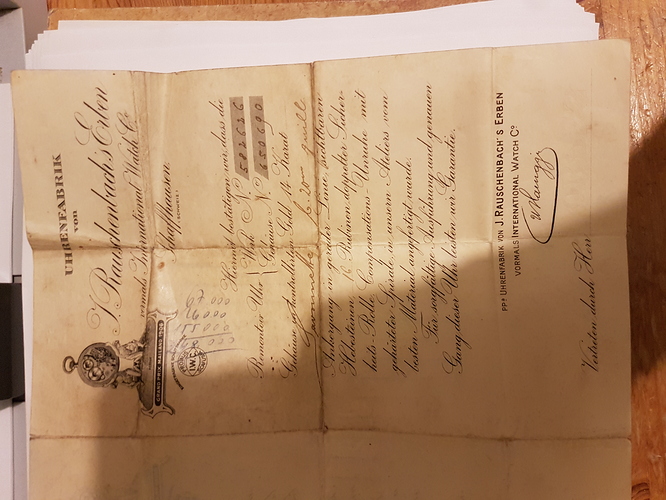 UHRENFABRIK
von
J. Rauschenbach's Erben
vormals International Watch Co
Schaffhausen.
(SCHWEIZ)
GRAND PRIX MAILAND 1906
I.W.C.
Hiermit bestätigen wir, dass die
Remontoir Uhr { Werk No 582626
Gehäuse No 650690
Gehäuse aus kontrolliertem Gold 14 Karat
Ankergang in gerader Linie, sichtbaren
Hebesteinen, 16 Rubinen, doppelter Sicher-
heits-Rolle, Compensations-Unruhe mit
gehärteter Spirale in unsern Ateliers vom
besten Material angefertigt wurde.
Für sorgfältige Ausführung und genauen
Gang dieser Uhr leisten wir Garantie.
ppa UHRENFABRIK VON J. RAUSCHENBACH'S ERBEN
VORMALS INTERNATIONAL WATCH Co
Vertreten durch Herr